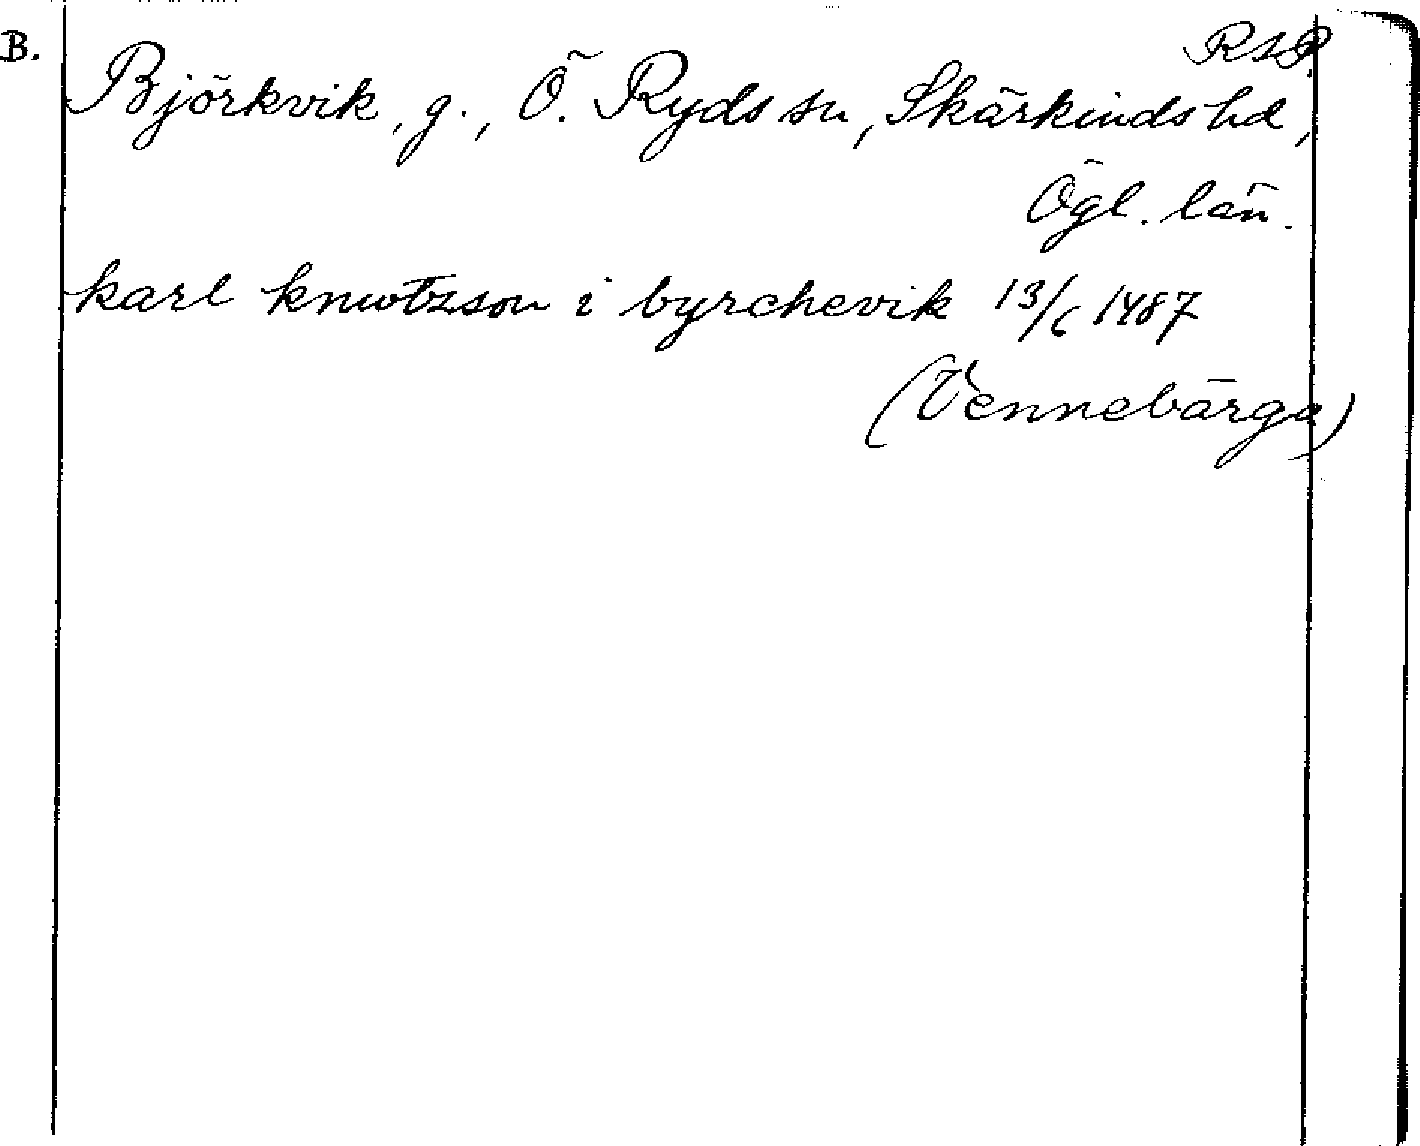 B.
RAP.
Björkvik, g., Ö. Ryds sn, Skärkinds hd,
Ögl. län.
karl knwtzson i byrchevik 13/6 1487
(Vennebärga)